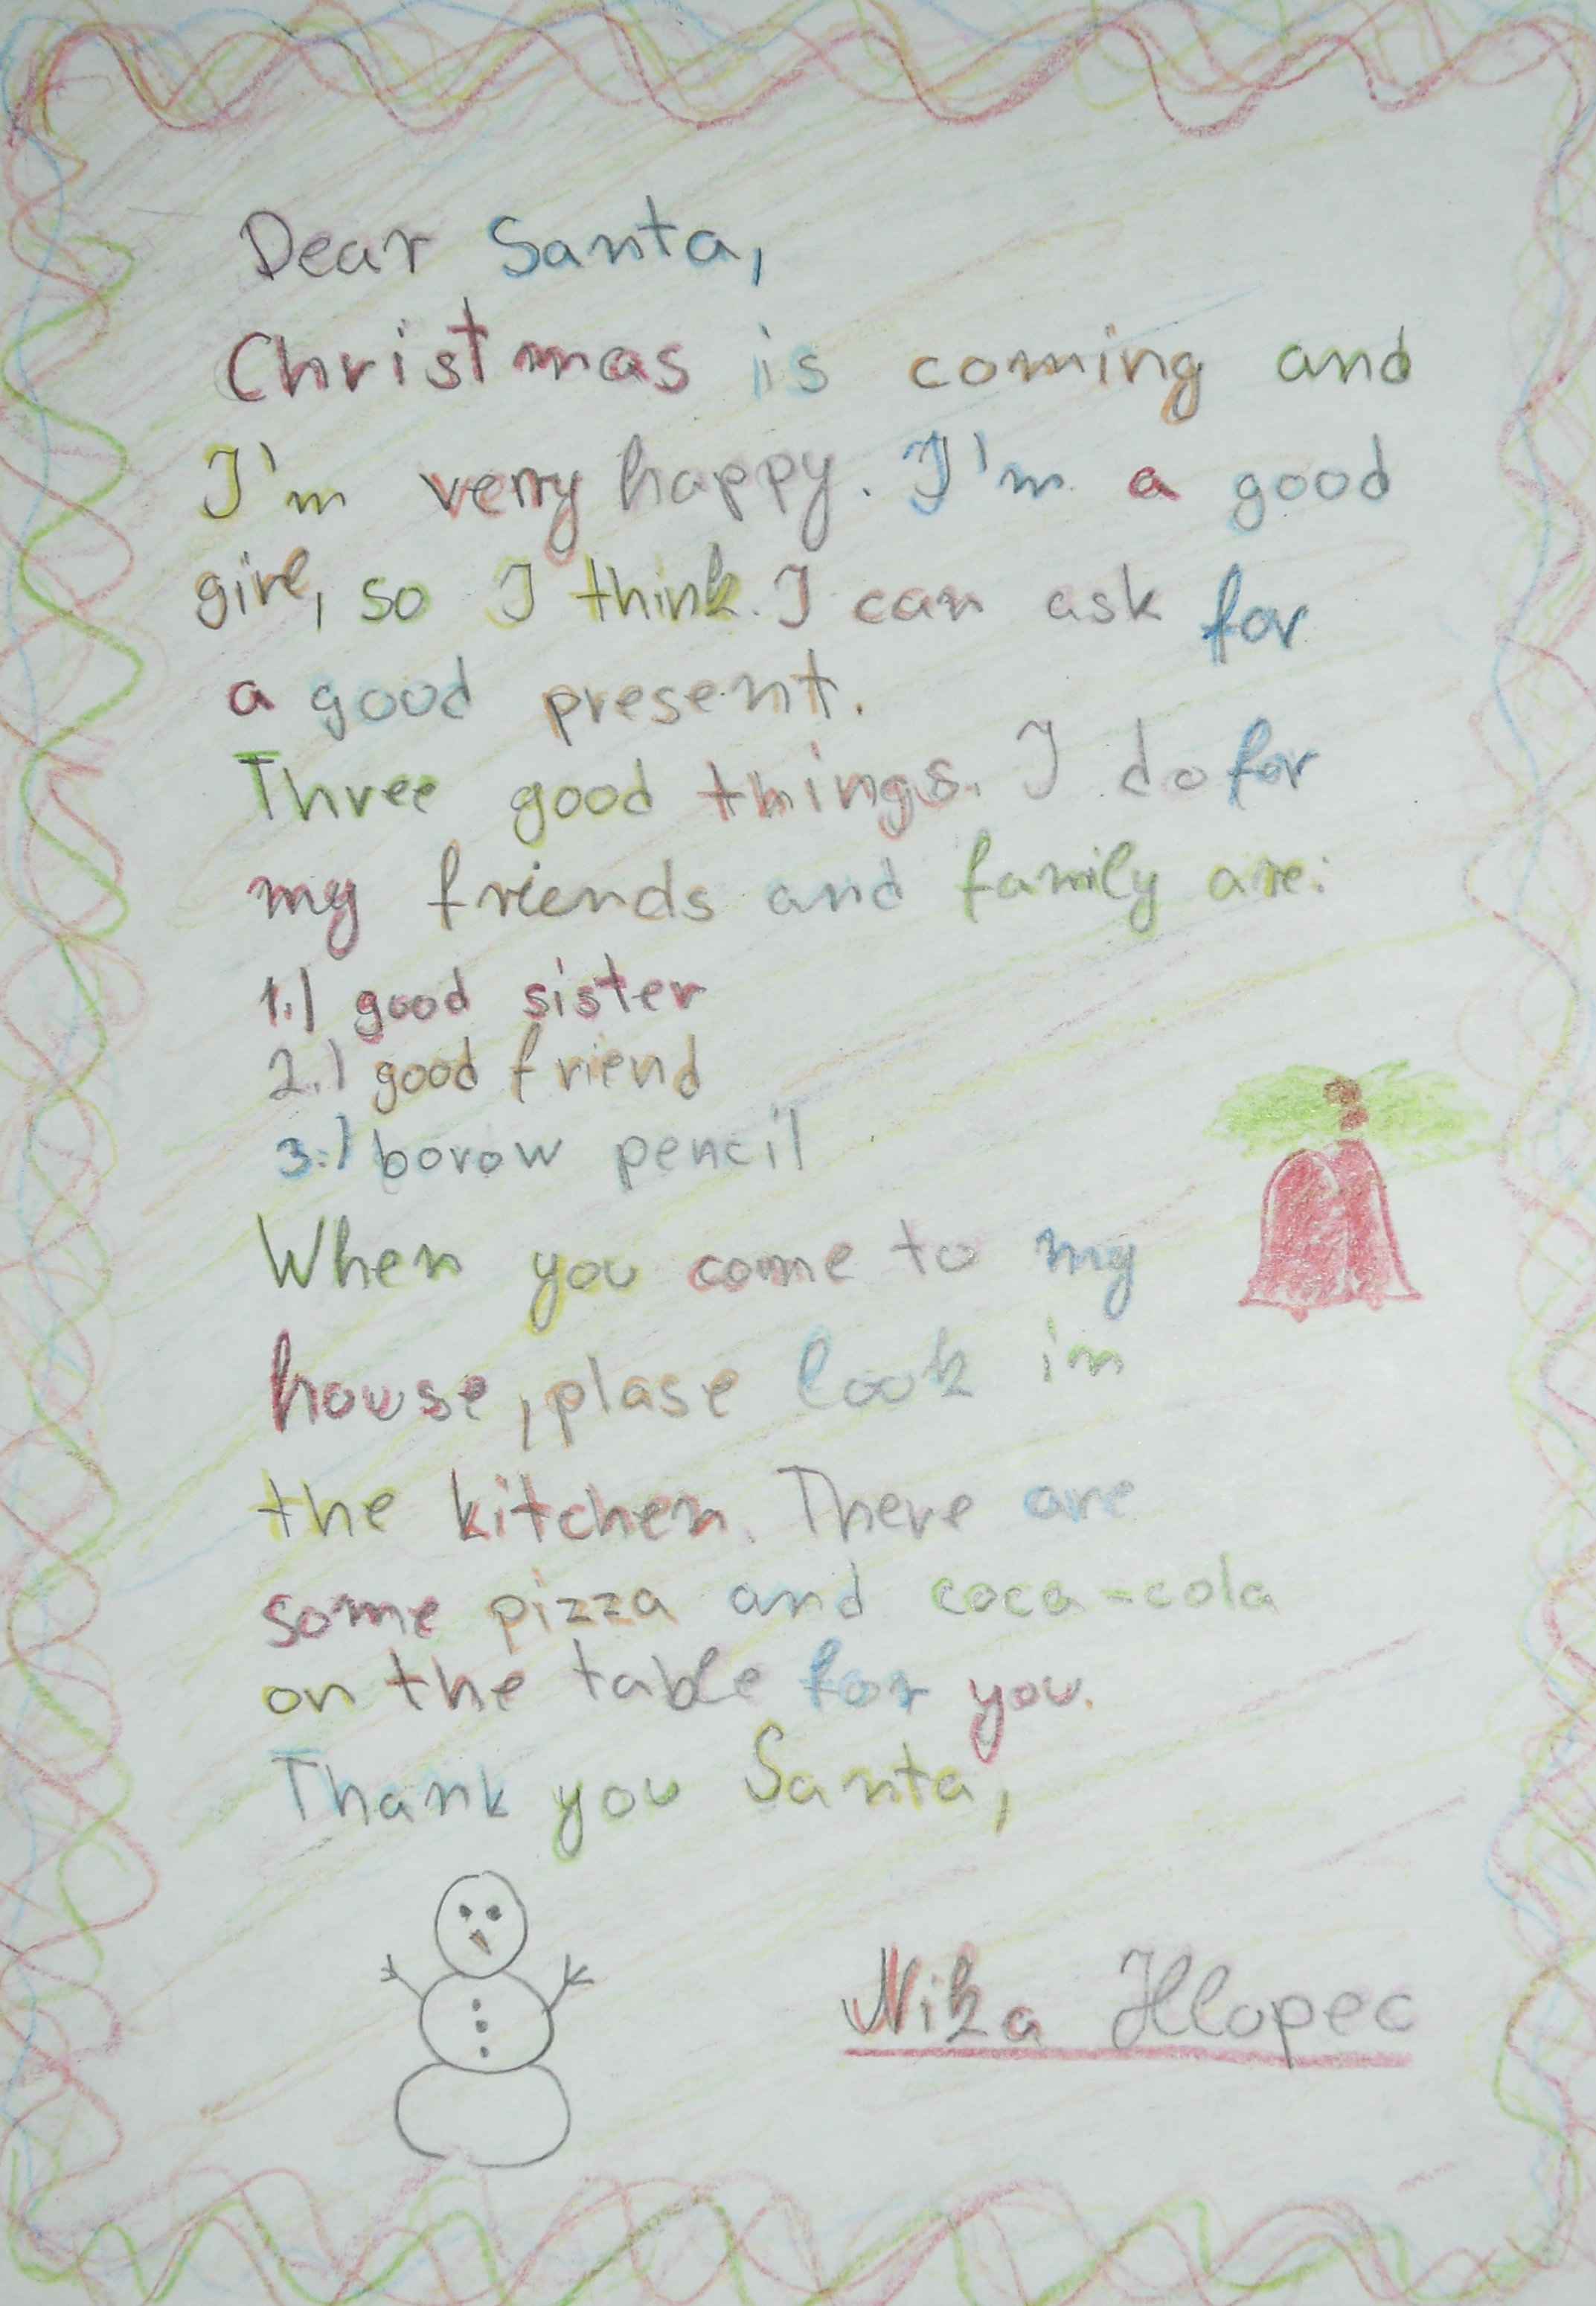 Dear Santa,
Christmas is coming and
I'm verry happy. I'm a good
girl, so I think I can ask for
a good present.
Three good things. I do for
my friends and family are:
1.) good sister
2.) good friend
3.) borow pencil
When you come to my
house, plase look in
the kitchen. There are
some pizza and coca-cola
on the table for you.
Thank you Santa,
Nika Hlopec